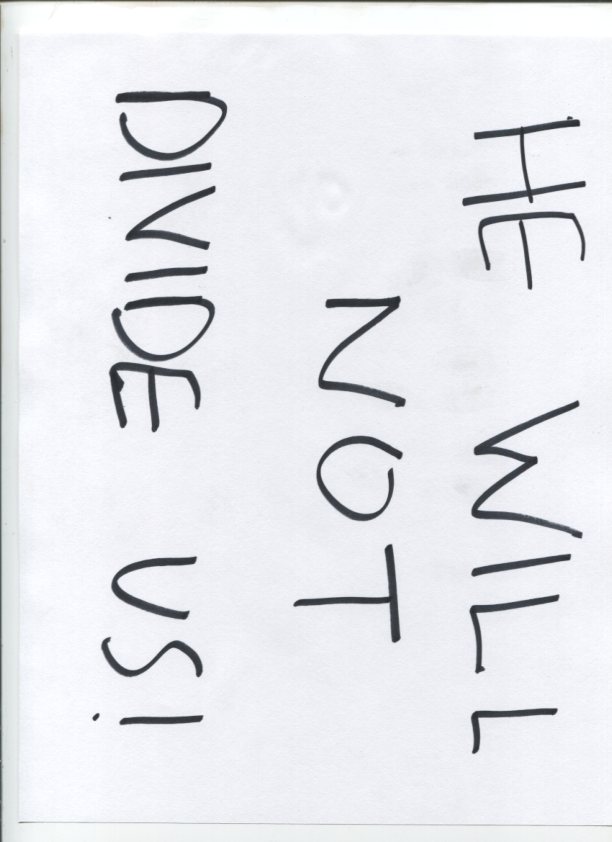 HE WILL
NOT
DIVIDE US!